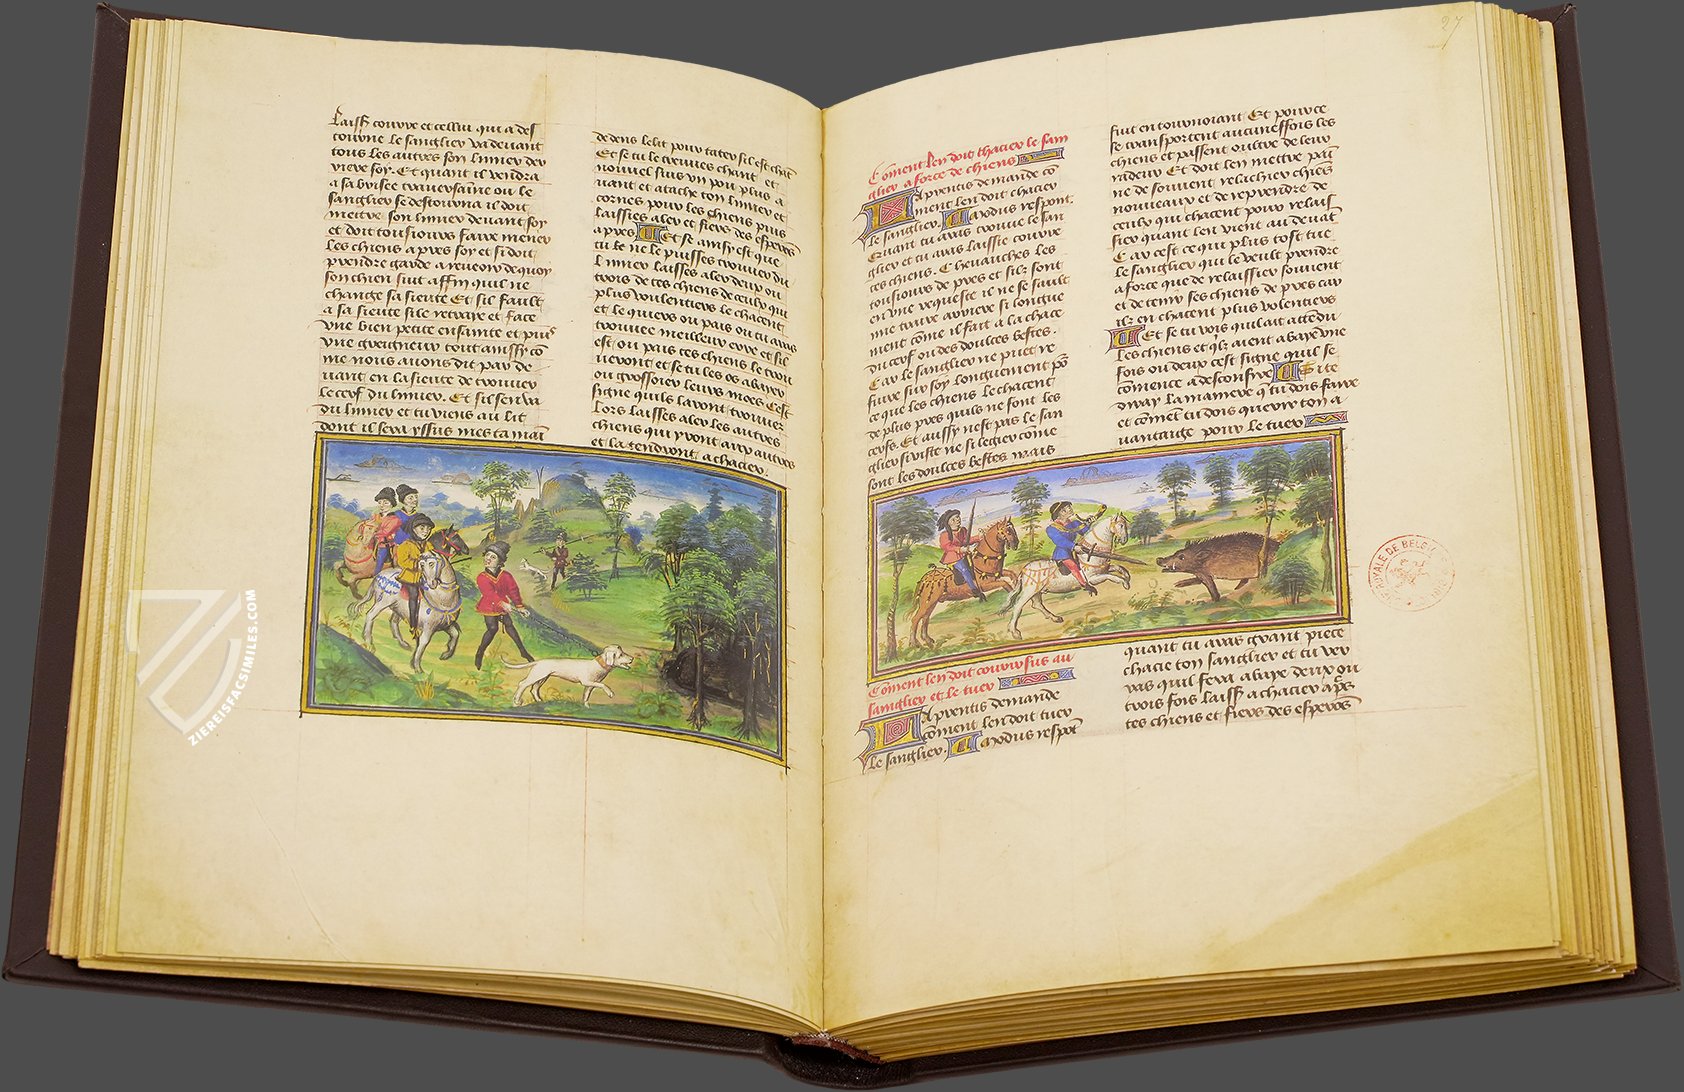 Laiss couvre et cellui qui a des
tourne le sanglier va devant
tous les autres son limier der
riere soy. Et quant il vendra
a sa brisee traversaine ou le
sanglier se destourna il doit
mettre son limier devant soy
et doit tousiours faire mener
les chiens apres soy et si doit
prendre garde a reveoir de quoy
son chien suit affin quil ne
change sa sieute Et sil fault
a sa sieute si le retraye et face
une bien petite ensainte et puis
une greigneur tout aussy co
me nous avons dit par de
vant en la sieute de trouver
le cerf du limier. Et sil sen va
du limier et tu viens au lit
dont il sera yssus mes ta main
dedens le lit pour tater sil est chau
Et se tu le treuves chault et
nouvel suis un pou plus a
vant et atache ton limier et
cornes pour les chiens puis
laissies aler et fiers des esperons
apres Et se ainsy est que
tu ne le puisses trouver du
limier laisses aler deux ou
trois de tes chiens de ceulx qui
plus voulentiers le chacent
et le quiers ou pais ou tu auras
trouvee meilleur erre et sil
est ou pais tes chiens le trou
veront et se tu les os abayer
ou grossoier leurs moes cest
signe quilz lavont trouver
Lors laisses aler les autres
chiens qui yront aux autres
et la tendront a chacier.
27
Coment len doit chacier le san
glier a force de chiens
Lapventis demande co
ment len doit chacier
le sanglier. Modus respont.
Quant tu auras trouve le san
glier et tu auras laissie courre
tes chiens. Chevauches les
tousiours de pres et silz sont
en une requeste il ne se fault
mie traire arriere si longue
ment come il fait a la chace
du cerf ou des doulces bestes.
Car le sanglier ne puet re
fuire sur soy longuement po
ce que les chiens le chacent
de plus pres quilz ne font les
cerfs. Et aussy nest pas le san
glier si viste ne si legier come
sont les doulces bestes mais
fuit en tournoiant Et pour ce
se transportent aucuneffois les
chiens et passent oultre de leur
radeur Et doit len mettre pai
ne de souvent relachier chies
nouveaux et de reprendre de
ceulx qui chacent pour relais
sier quant len vient au devat
Car cest ce qui plus tost tue
le sanglier qui le veult prendre
a force que de relaissier souvent
et de tenir ses chiens de pres car
ilz en chacent plus volentiers
Et se tu vois quil ait attedu
les chiens et qlz aient abaye une
fois ou deux cest signe quil se
comence a desconfire Si te
diray la maniere q tu dois faire
et comet tu dois querir ton a
vantaige pour le tuer
Coment len doit courir sus au
sanglier et le tuer
Lapventis demande
coment len doit tuer
le sanglier. Modus respot
Quant tu auras grant piece
chacie ton sanglier et tu ver
ras quil sera abaye deux ou
trois fois laiss a chacier apres
tes chiens et fiers des esperos
ROYALE DE BELGI
ZIEREISFACSIMILES.COM